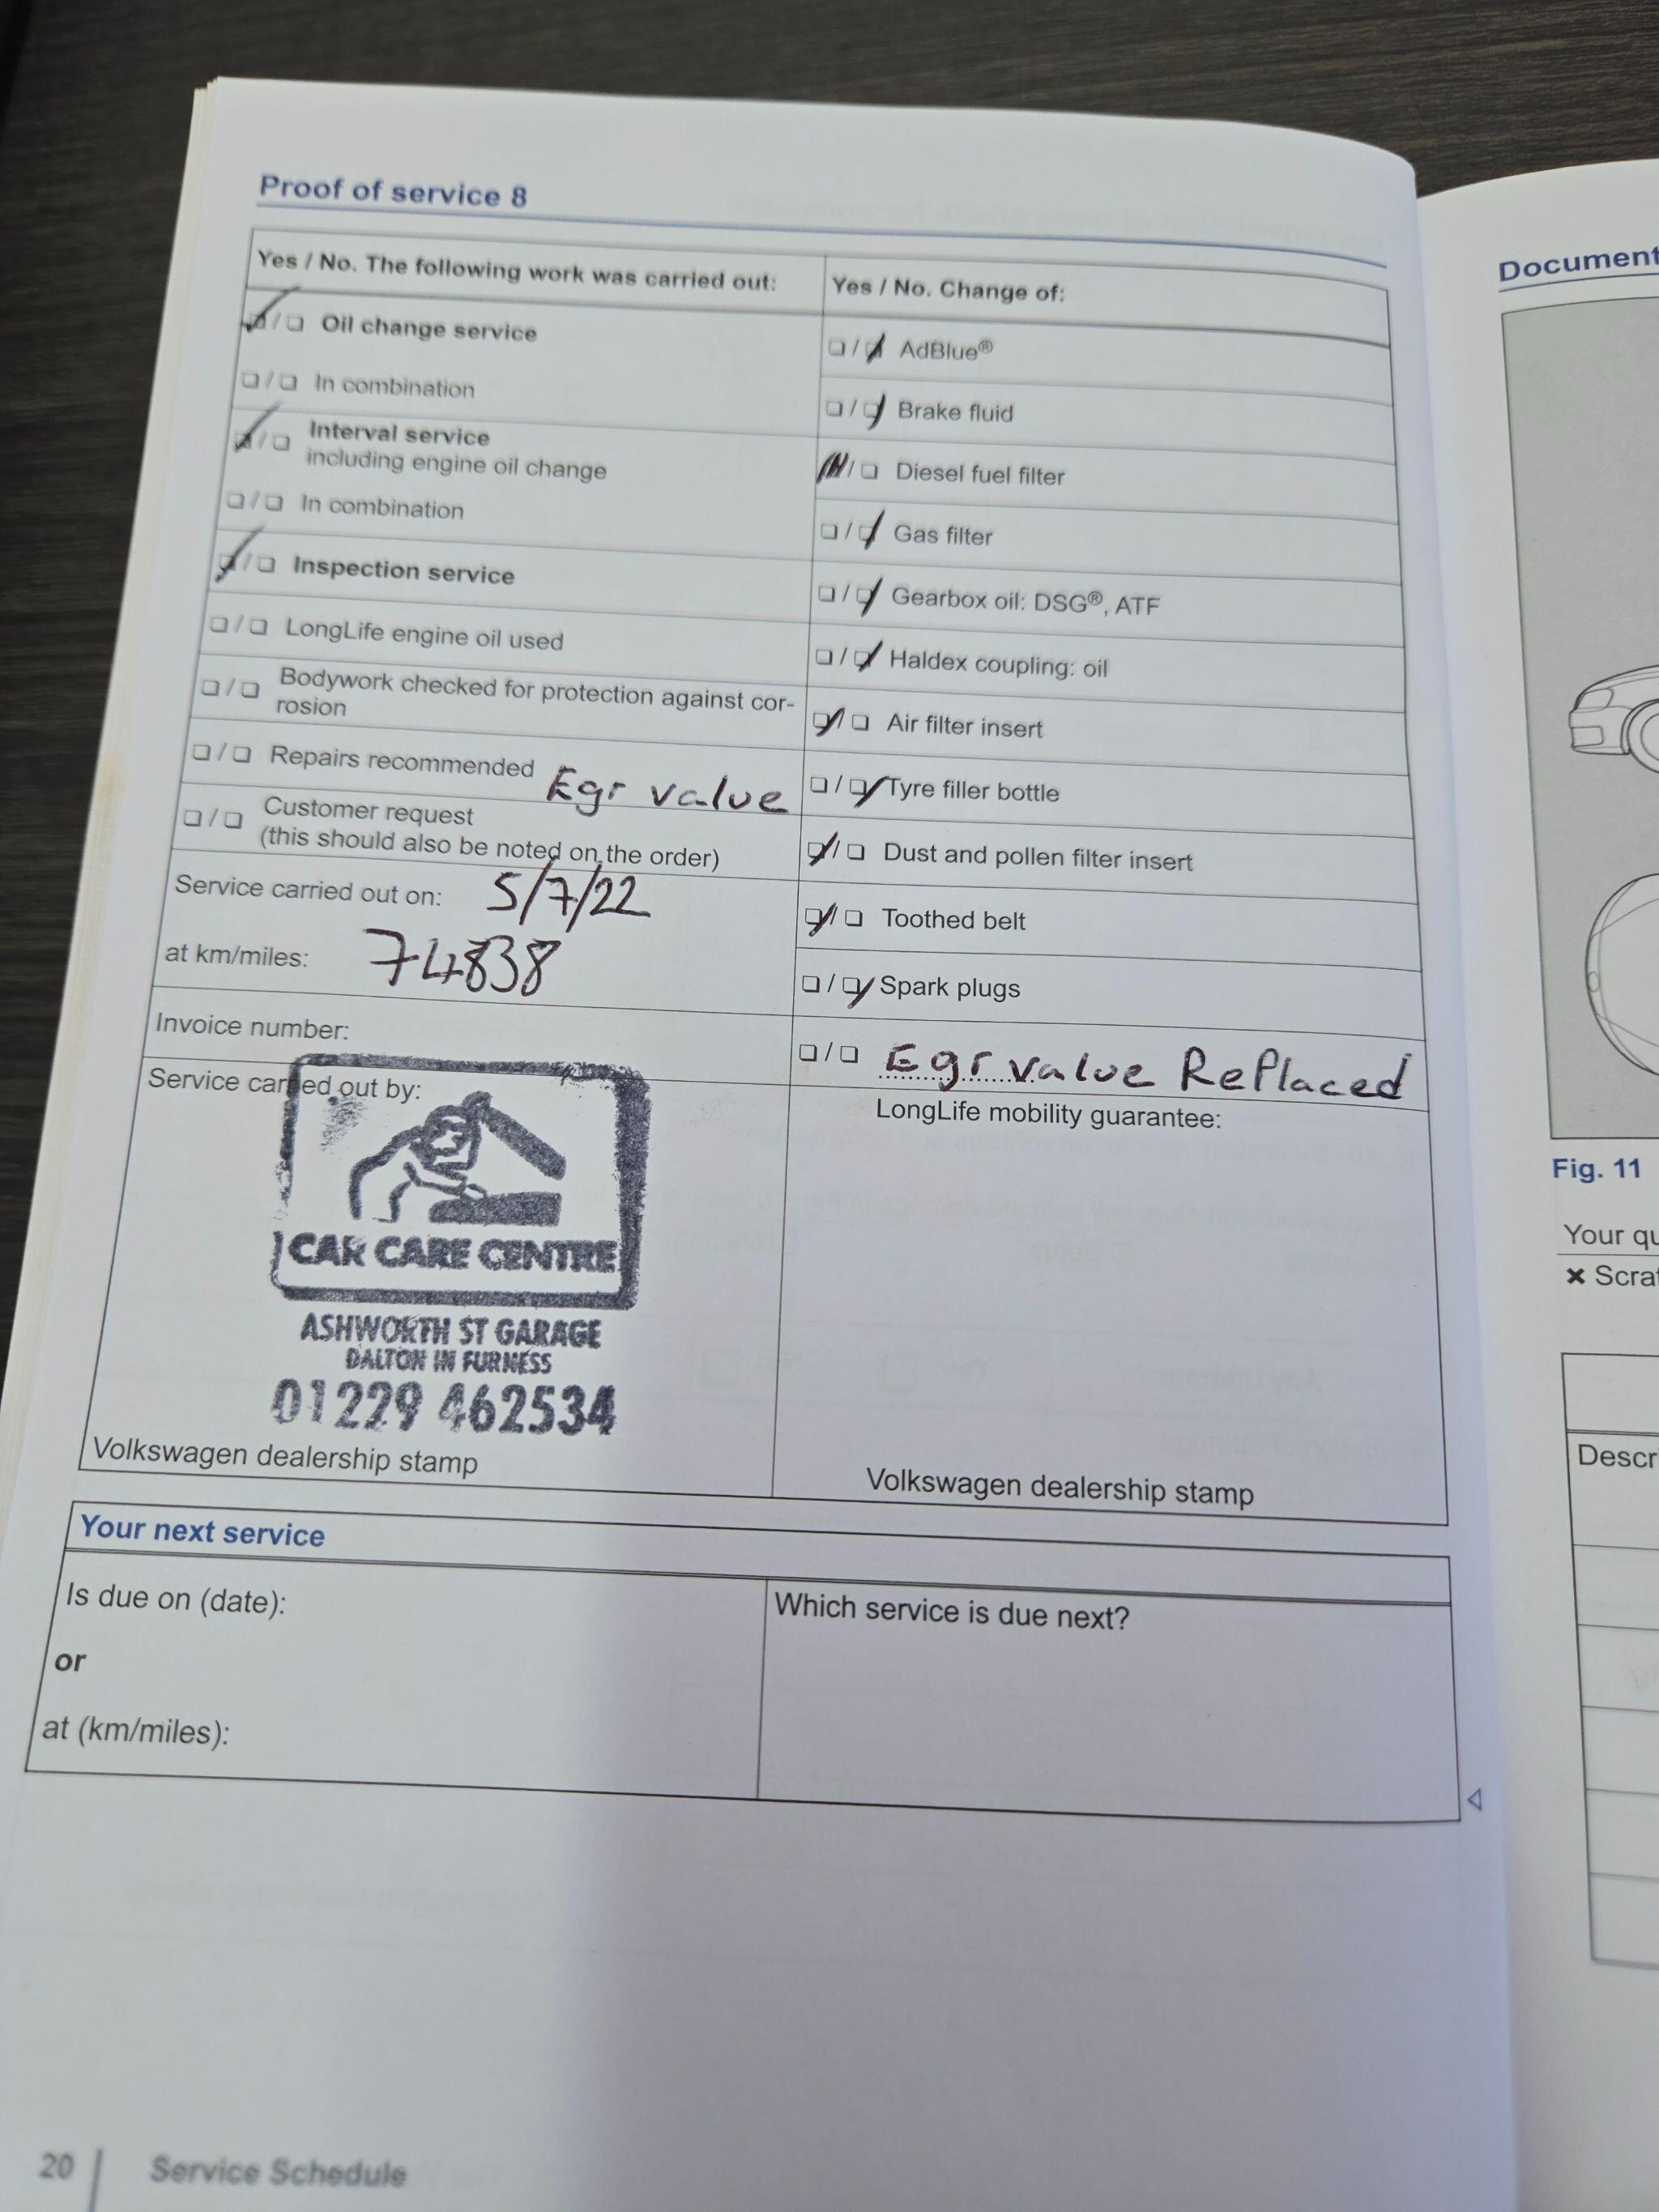 Proof of service 8
Yes / No. The following work was carried out:
☑/☐ Oil change service
☐/☐ In combination
☑/☐ Interval service
including engine oil change
☐/☐ In combination
☑/☐ Inspection service
☐/☐ LongLife engine oil used
☐/☐ Bodywork checked for protection against cor-
rosion
☐/☐ Repairs recommended Egr value
☐/☐ Customer request
(this should also be noted on the order)
Service carried out on: 5/7/22
at km/miles: 74838
Invoice number:
Service carried out by:
CAR CARE CENTRE
ASHWORTH ST GARAGE
DALTON IN FURNESS
01229 462534
Volkswagen dealership stamp
Yes / No. Change of:
☐/☑ AdBlue®
☐/☑ Brake fluid
☑/☐ Diesel fuel filter
☐/☑ Gas filter
☐/☑ Gearbox oil: DSG®, ATF
☐/☑ Haldex coupling: oil
☑/☐ Air filter insert
☐/☑ Tyre filler bottle
☑/☐ Dust and pollen filter insert
☑/☐ Toothed belt
☐/☑ Spark plugs
☐/☐ Egr value Replaced
LongLife mobility guarantee:
Volkswagen dealership stamp
Your next service
Is due on (date):
or
at (km/miles):
Which service is due next?
20 Service Schedule
Document
Fig. 11
Your qu
× Scra
Descr